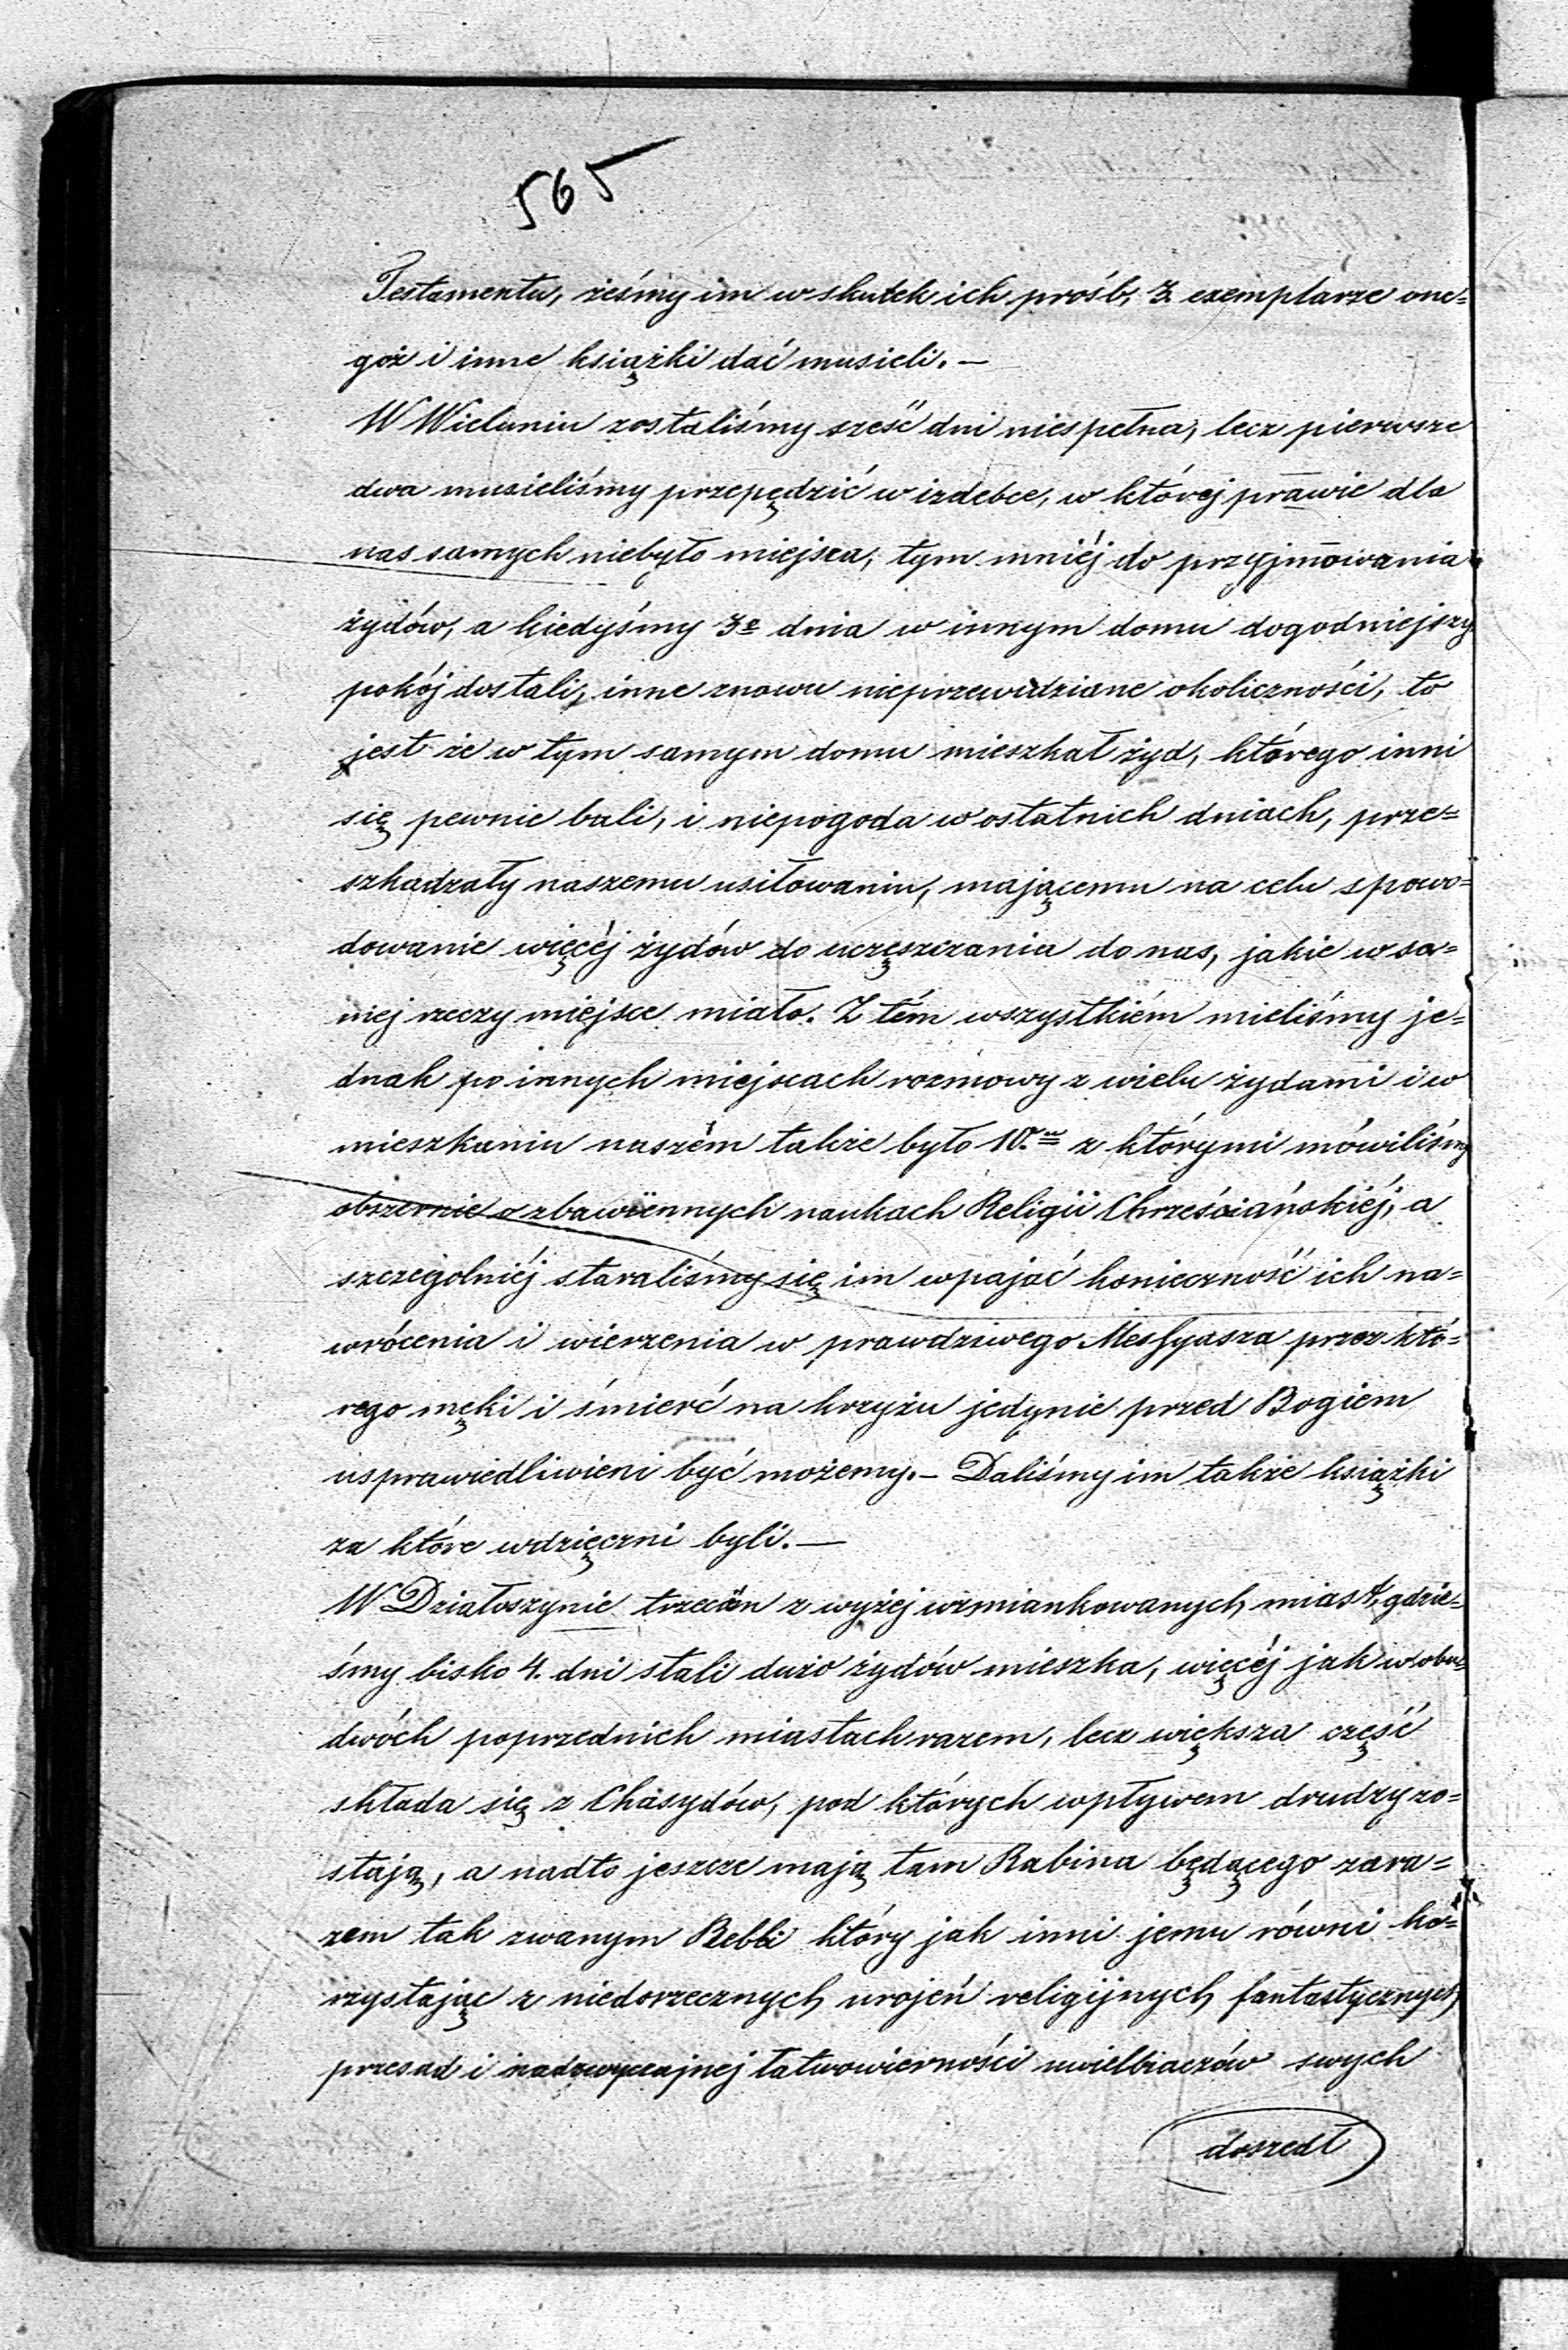 565
Testamentu, żeśmy im w skutek ich prośb, 3. exemplarze one=
goż i inne książki dać musieli. —
W Wieluniu zostaliśmy sześć dni niespełna, lecz pierwsze
dwa musieliśmy przepędzić w izdebce, w której prawie dla
nas samych niebyło miejsca, tym mniéj do przyjmowania
żydów, a kiedyśmy 3e dnia w innym domu dogodniejszy
pokój dostali, inne znowu nieprzewidziane okoliczności, to
jest że w tym samym domu mieszkał żyd, którego inni
się pewnie bali, i niepogoda w ostatnich dniach, prze=
szkadzały naszemu usiłowaniu, mającemu na celu spowo=
dowanie więcéj żydów do uczęszczania do nas, jakie w sa=
mej rzeczy miejsce miało. Z tém wszystkiém mieliśmy je=
dnak po innych miejscach rozmowy z wielu żydami i w
mieszkaniu naszém także było 10.u z którymi mówiliśmy
obszernie o zbawiennych naukach Religii Chrześciańskiéj, a
szczególniéj staraliśmy się im wpajać konieczność ich na=
wrócenia i wierzenia w prawdziwego Messyasza przez któ=
rego męki i śmierć na krzyżu jedynie przed Bogiem
usprawiedliwieni być możemy. — Daliśmy im także książki
za które wdzięczni byli. —
W Działoszynie trzecim z wyżej wzmiankowanych miast, gdzie=
śmy bisko 4. dni stali dużo żydów mieszka, więcéj jak w obu=
dwóch poprzednich miastach razem, lecz większa część
składa się z Chasydów, pod których wpływem drudzy zo=
stają, a nadto jeszcze mają tam Rabina będącego zara=
zem tak zwanym Rebbi który jak inni jemu równi ko=
rzystając z niedorzecznych urojeń religijnych fantastycznych
przesad i nadzwyczajnej łatwowierności uwielbiaczów swych
doszedł